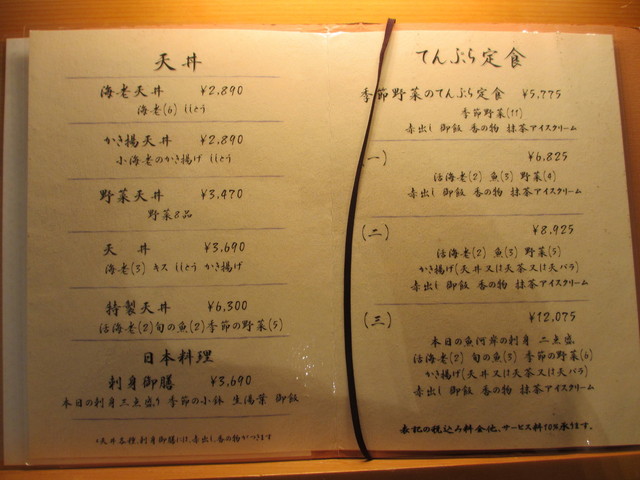 天丼
海老天丼 ¥2,890
海老(6) ししとう
かき揚天丼 ¥2,890
小海老のかき揚げ ししとう
野菜天丼 ¥3,470
野菜8品
天 丼 ¥3,690
海老(3) キス ししとう かき揚げ
特製天丼 ¥6,300
活海老(2)旬の魚(2)季節の野菜(5)
日本料理
刺身御膳 ¥3,690
本日の刺身三点盛り 季節の小鉢 生湯葉 御飯
*天丼各種、刺身御膳には、赤出し、香の物がつきます
てんぷら定食
季節野菜のてんぷら定食 ¥5,775
季節野菜(11)
赤出し 御飯 香の物 抹茶アイスクリーム
一) ¥6,825
活海老(2) 魚(3) 野菜(4)
赤出し 御飯 香の物 抹茶アイスクリーム
(二) ¥8,925
活海老(2) 魚(3) 野菜(5)
かき揚げ(天丼又は天茶又は天バラ)
赤出し 御飯 香の物 抹茶アイスクリーム
(三) ¥12,075
本日の魚河岸の刺身 二点盛
活海老(2) 旬の魚(3) 季節の野菜(6)
かき揚げ(天丼又は天茶又は天バラ)
赤出し 御飯 香の物 抹茶アイスクリーム
表記の税込み料金他、サービス料10%承ります。